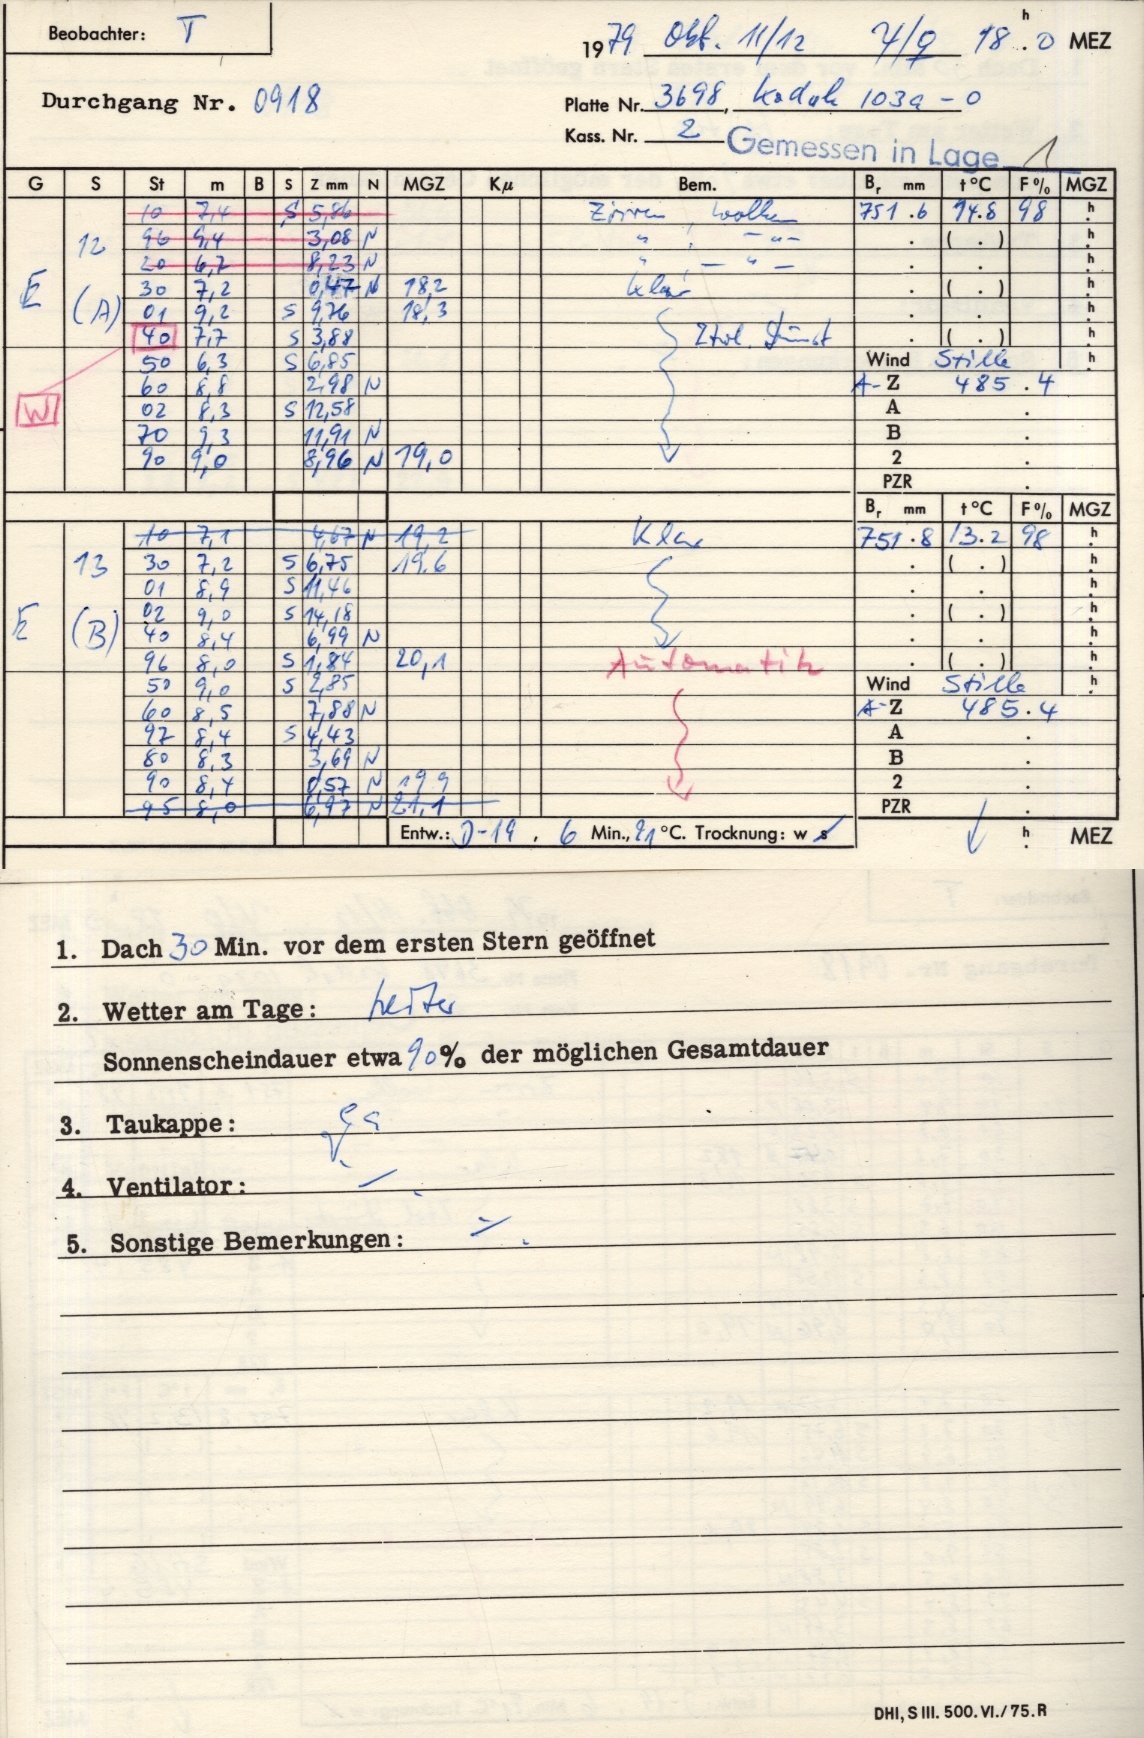 Beobachter: T
1979 Okt. 11/12 18 h . 0 MEZ
Durchgang Nr. 0918
Platte Nr. 3698, Kodak 103a-O
Kass. Nr. 2 Gemessen in Lage 1
G S St m B S Z mm N MGZ Kμ Bem. Br mm t°C F% MGZ
10 7,4 S 5,86 Zirren, Wolken 751.6 14.8 98 h
12 96 9,4 3,08 N " , -"- . ( . )
20 6,7 8,23 N " , — " — . . h
E 30 7,2 0,47 N 18,2 klar . ( . )
(A) 01 9,2 S 9,76 18,3 . . h
40 7,7 S 3,88 Ztrl. Dunst . ( . ) h
50 6,3 S 6,85 Wind Stille h
60 8,8 2,98 N A-Z 485.4
W 02 8,3 S 12,58 A .
70 9,3 11,91 N B .
90 9,0 8,96 N 19,0 2 .
PZR .
Br mm t°C F% MGZ
10 7,1 4,67 N 19,2 Klar 751.8 13.2 98 h
13 30 7,2 S 6,75 19,6 . ( . )
01 8,9 S 11,46 . . h
E (B) 02 9,0 S 14,18 . ( . ) h
40 8,4 6,99 N . . h
96 8,0 S 1,84 20,1 Automatik . ( . ) h
50 9,0 S 2,85 Wind Stille h
60 8,5 7,88 N A-Z 485.4
97 8,4 S 4,43 A .
80 8,3 3,69 N B .
90 8,4 0,57 N 19 9 2 .
95 8,0 6,97 N 21,1 PZR .
Entw.: D-19, 6 Min., 21 °C. Trocknung: w s h . MEZ
1. Dach 30 Min. vor dem ersten Stern geöffnet
2. Wetter am Tage: heiter
Sonnenscheindauer etwa 90% der möglichen Gesamtdauer
3. Taukappe: ja
4. Ventilator: —
5. Sonstige Bemerkungen: -/.
DHI, S III. 500. VI./75. R